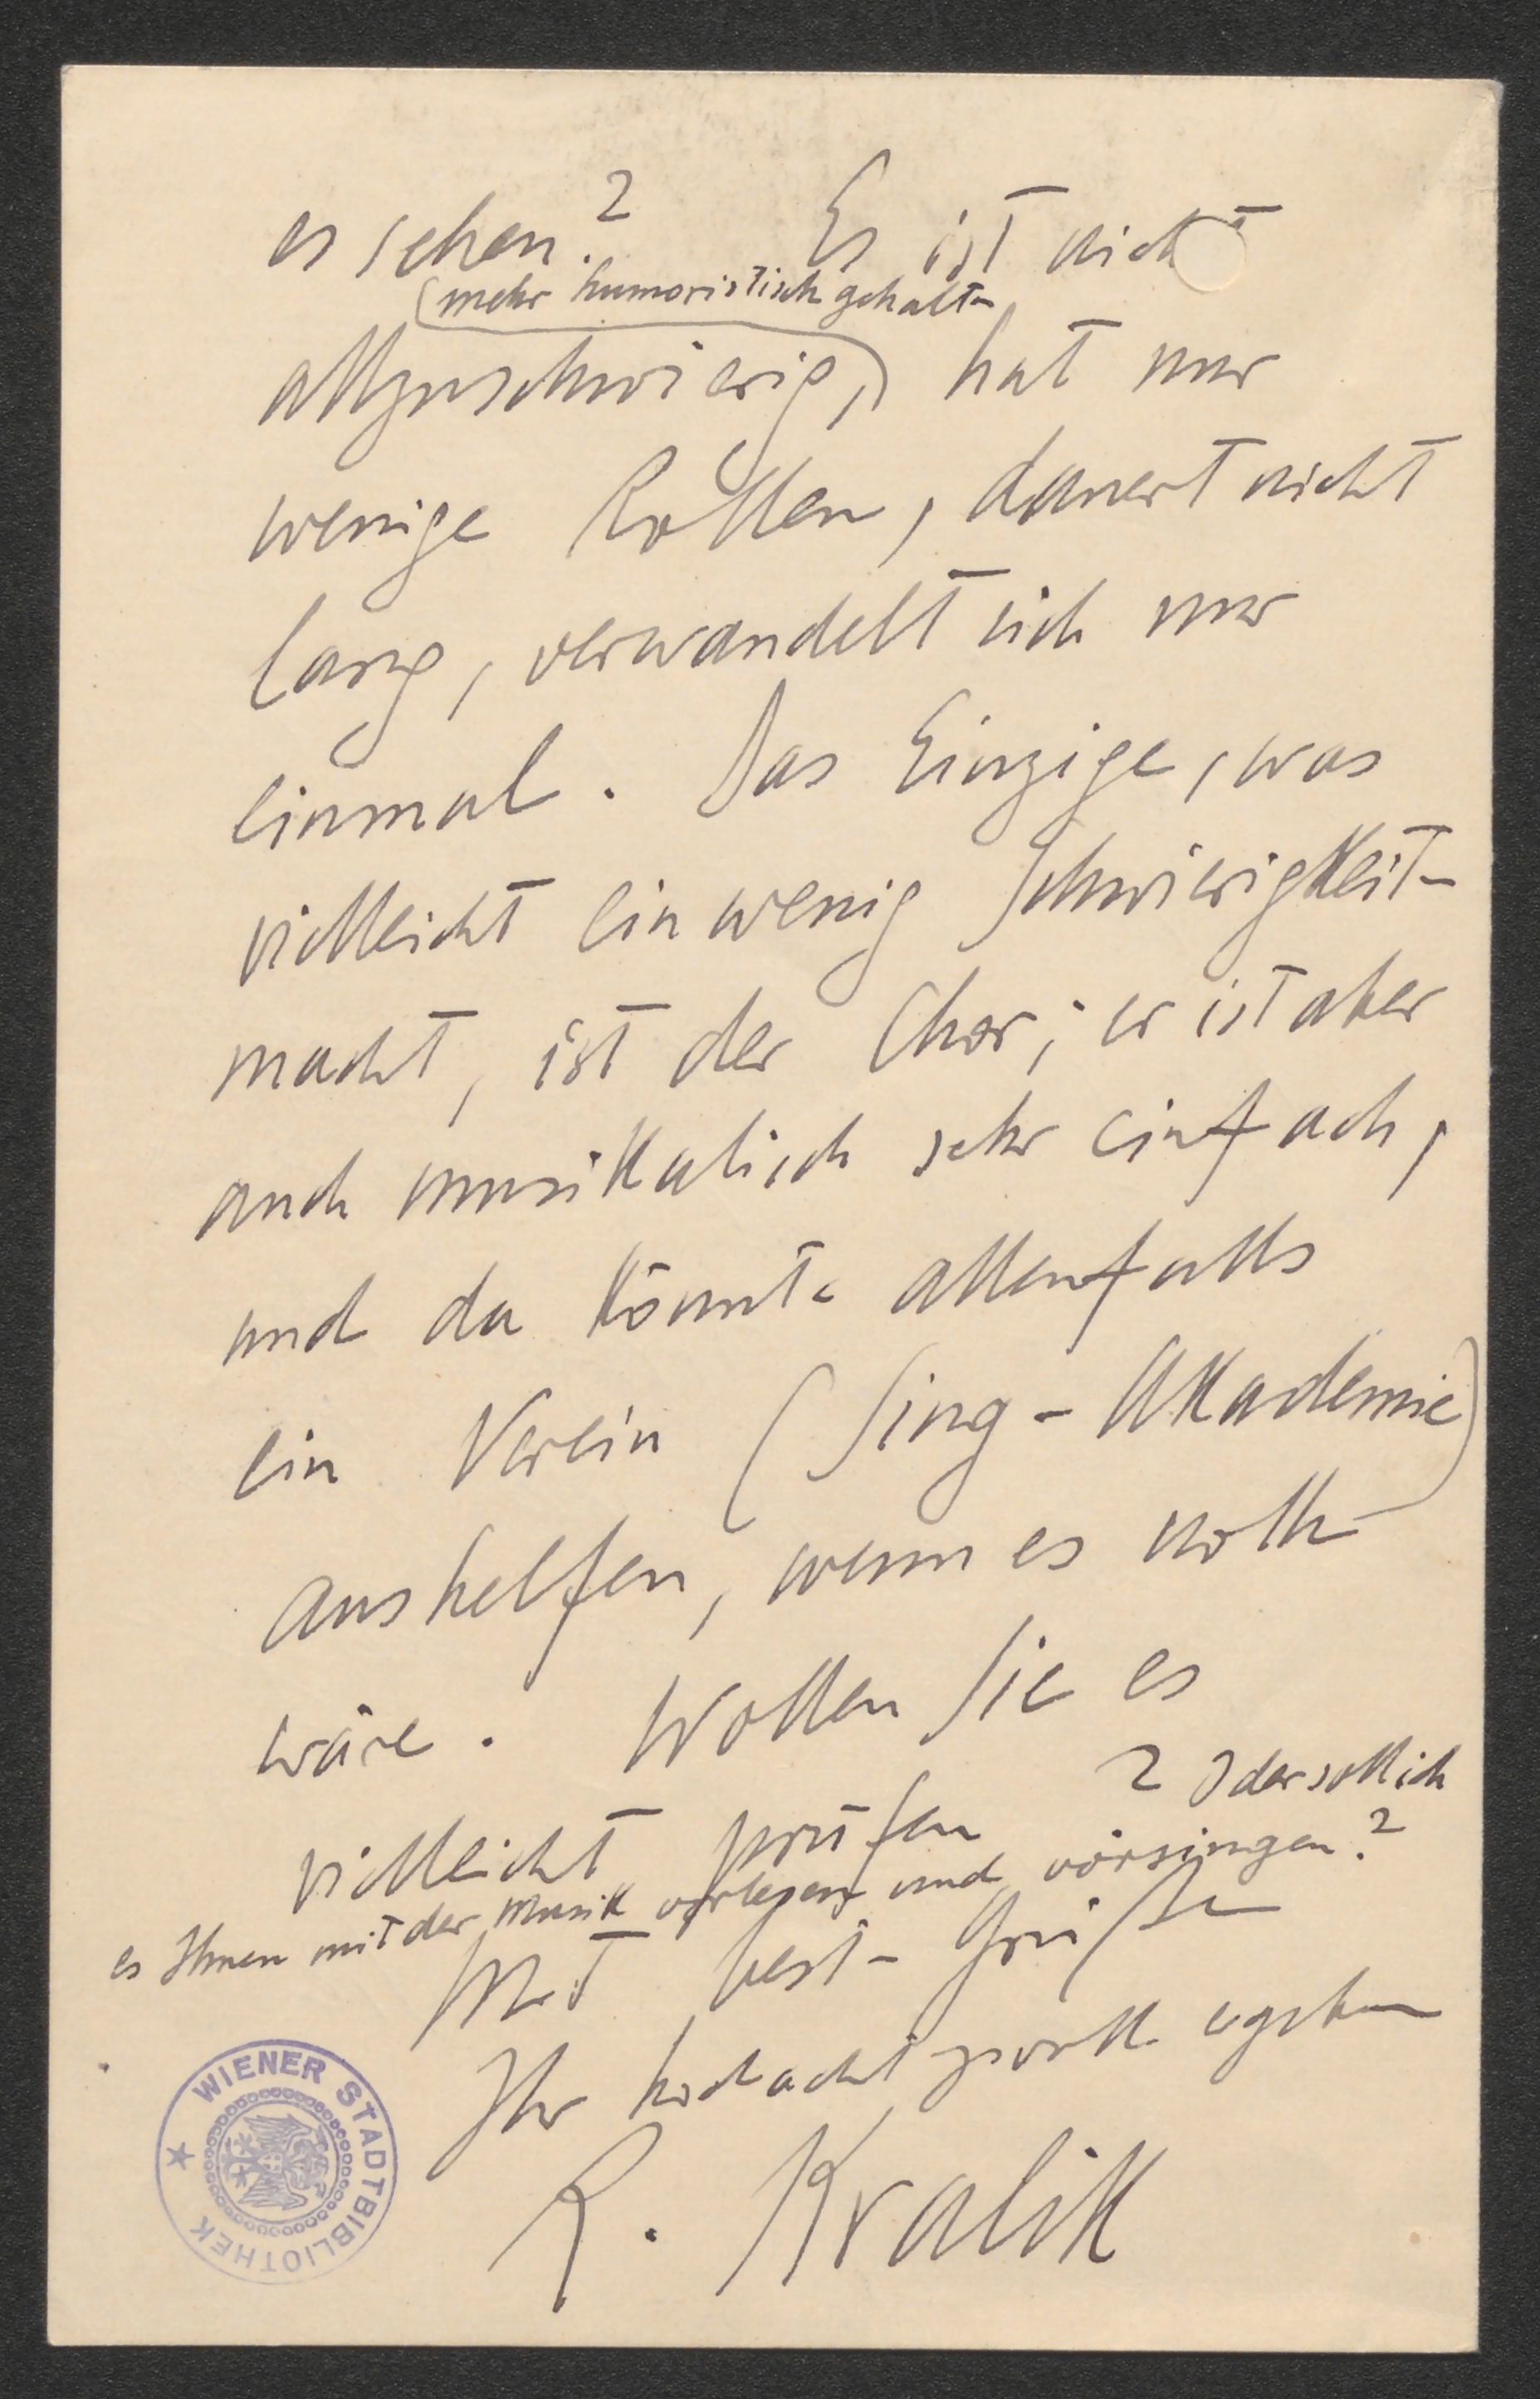 es sehen? Es ist nicht
(mehr humoristisch gehalten
allzuschwierig,) hat nur
wenige Rollen, dauert nicht
lang, verwandelt sich nur
einmal. Das Einzige, was
vielleicht ein wenig Schwierigkeit
macht, ist der Chor; er ist aber
auch musikalisch sehr einfach,
und da könnte allenfalls
ein Verein (Sing-Akademie)
aushelfen, wenn es noth
wäre. Wollen Sie es
vielleicht prüfen? Oder soll ich
es Ihnen mit der Musik vorlegen und vorsingen?
Mit besten Grüßen
Ihr hochachtungsvoll ergebener
R. Kralik
WIENER STADTBIBLIOTHEK